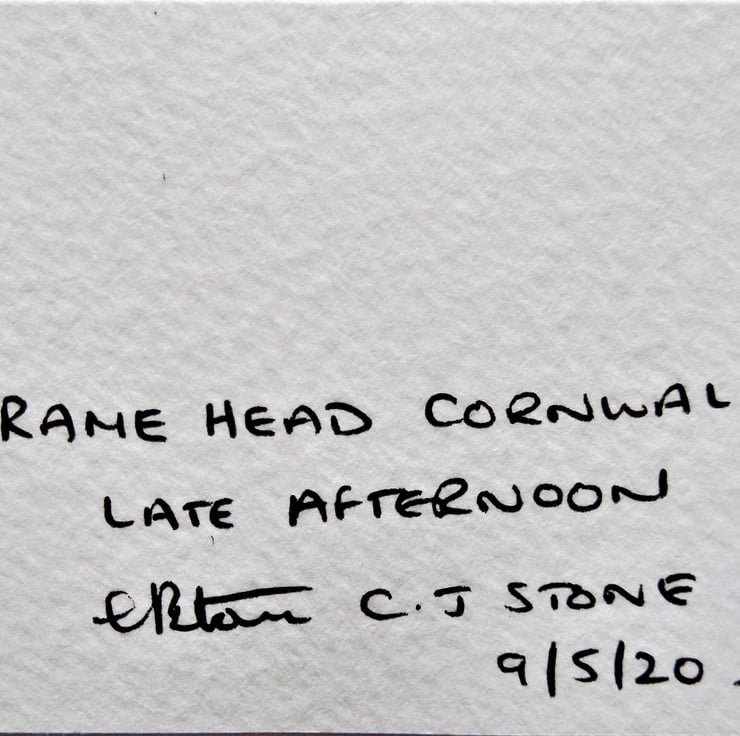 RAME HEAD CORNWAL
LATE AFTERNOON
C.J STONE
9/5/20.